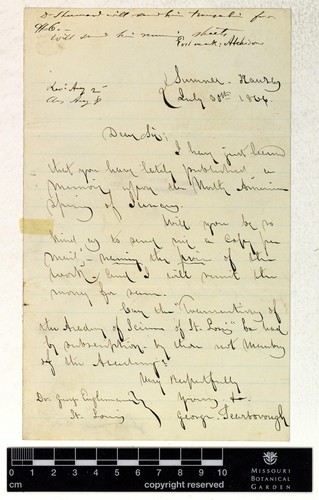 Dr Shumard will send his Transactions for
will send his remaining sheets
Postmark: Atchison
Rec: Aug 2
As Aug 8
Sumner. Kansas
July 30th 18
Dear Sir;
I have just learned
that you have lately published a
Memoir upon the North American
Species of
Will you be so
kind as to send me a copy per
mail; naming the price of the
work and I will remit the
money for same.
Can the "Transactions of
the Academy of Science of St. Louis" be had
by subscription by those not Members
of the Academy?
Very Respectfully
Yours &c.
George Scarborough
Dr. George Engelmann
St. Louis
cm
0 1 2 3 4 5 6 7 8 9 10
copyright reserved
MISSOURI
BOTANICAL
GARDEN